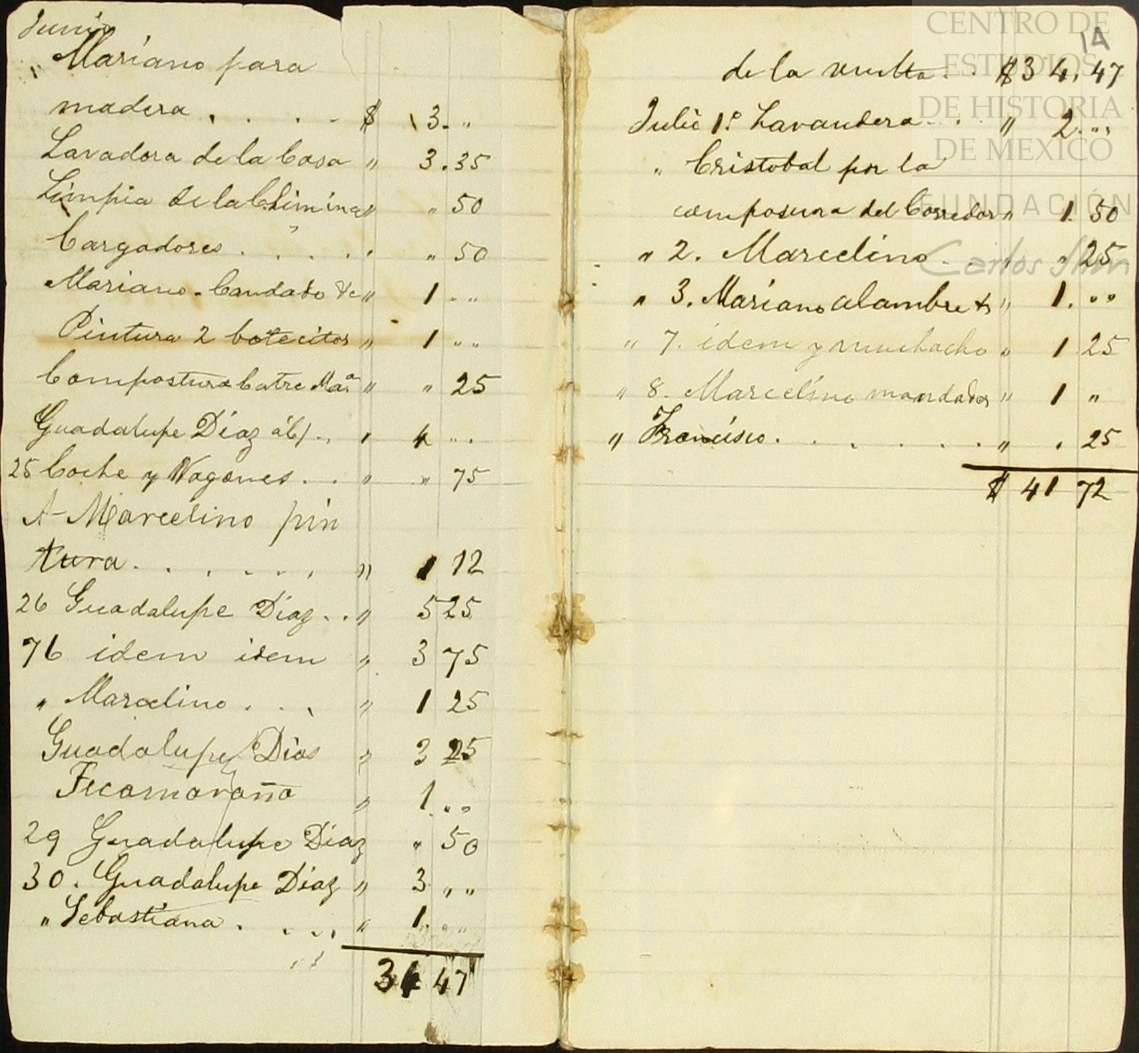 Junio
" Mariano para
madera . . . . $ 3. "
Lavadora de la Casa " 3.35
Limpia de la Chiminea " " 50
Cargadores . . . . . " 50
Mariano. Candado &c " 1 " "
Pintura 2 botecitos " 1 " "
Compostura Catre Ma.ª " " 25
Guadalupe Díaz á c/. . " 4 " "
25 Coche y Wagones . . " " 75
A- Marcelino pin
tura . . . . . . . " 1 12
26 Guadalupe Díaz . . " 5 25
76 idem idem " 3 75
" Marcelino . . . " 1 25
Guadalupe Dias " 3 25
" 1. " "
29 Guadalupe Diaz " 50
30. Guadalupe Diaz " 3 " "
" Sebastiana . . . . " 1. " "
34 47
14
de la vuelta . . $34,47
Julio 1º Lavandera . . . " 2. " "
" Cristobal por la
composura del Corredor " 1. 50
" 2. Marcelino . . " " 25
" 3. Mariano alambre & " 1. " "
" 7. idem y muchacho " 1 25
" 8. Marcelino mandados " 1 "
" Francisco . . . . . . . " . 25
$ 41 72
CENTRO DE
ESTUDIOS
DE HISTORIA
DE MEXICO
FUNDACIÓN
Carlos Slim